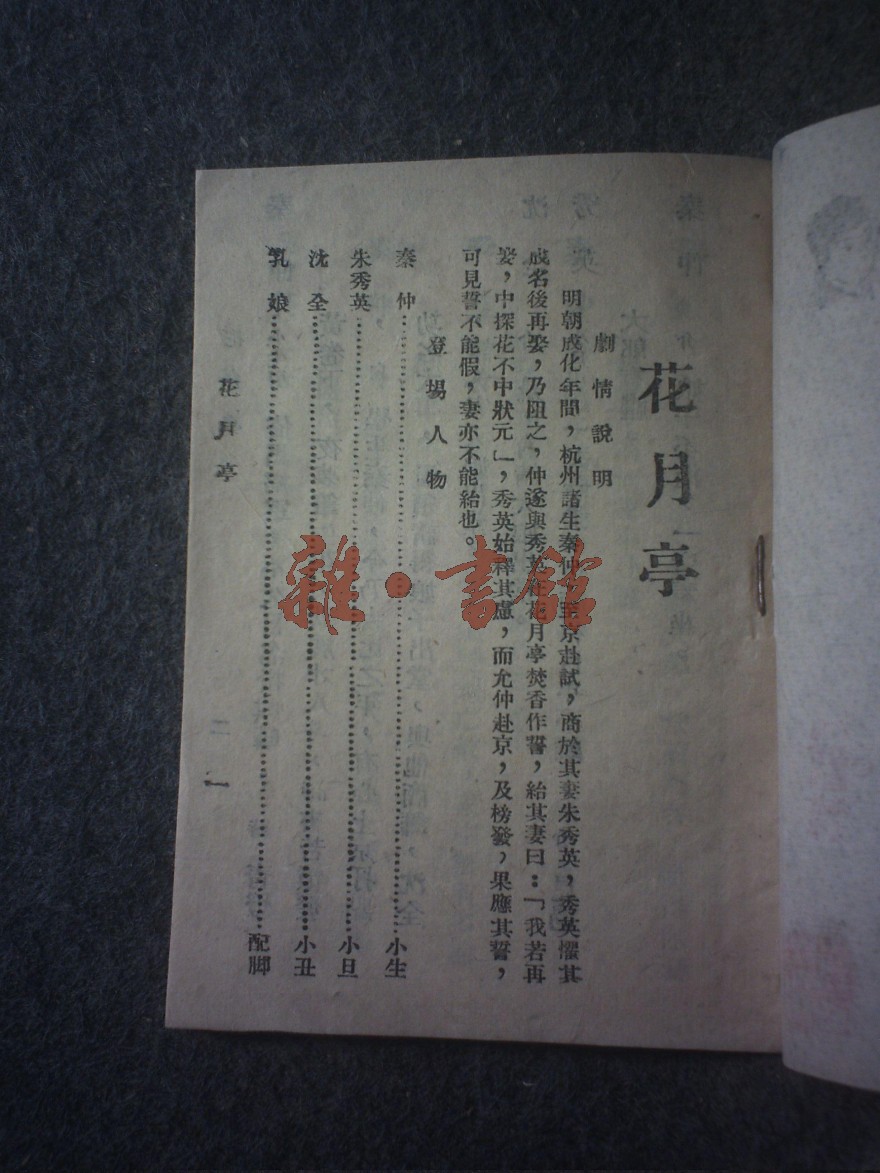 花月亭
劇情說明
明朝成化年間，杭州諸生秦仲，至京赴試，商於其妻朱秀英，秀英懼其
成名後再娶，乃阻之，仲遂與秀英在花月亭焚香作誓，給其妻曰：「我若再
娶，中探花不中狀元」，秀英始釋其慮，而允仲赴京，及榜發，果應其誓，
可見誓不能假，妻亦不能給也。
登場人物
秦仲……小生
朱秀英……小旦
沈全……小丑
乳娘……配脚
花月亭
一
雜·書館